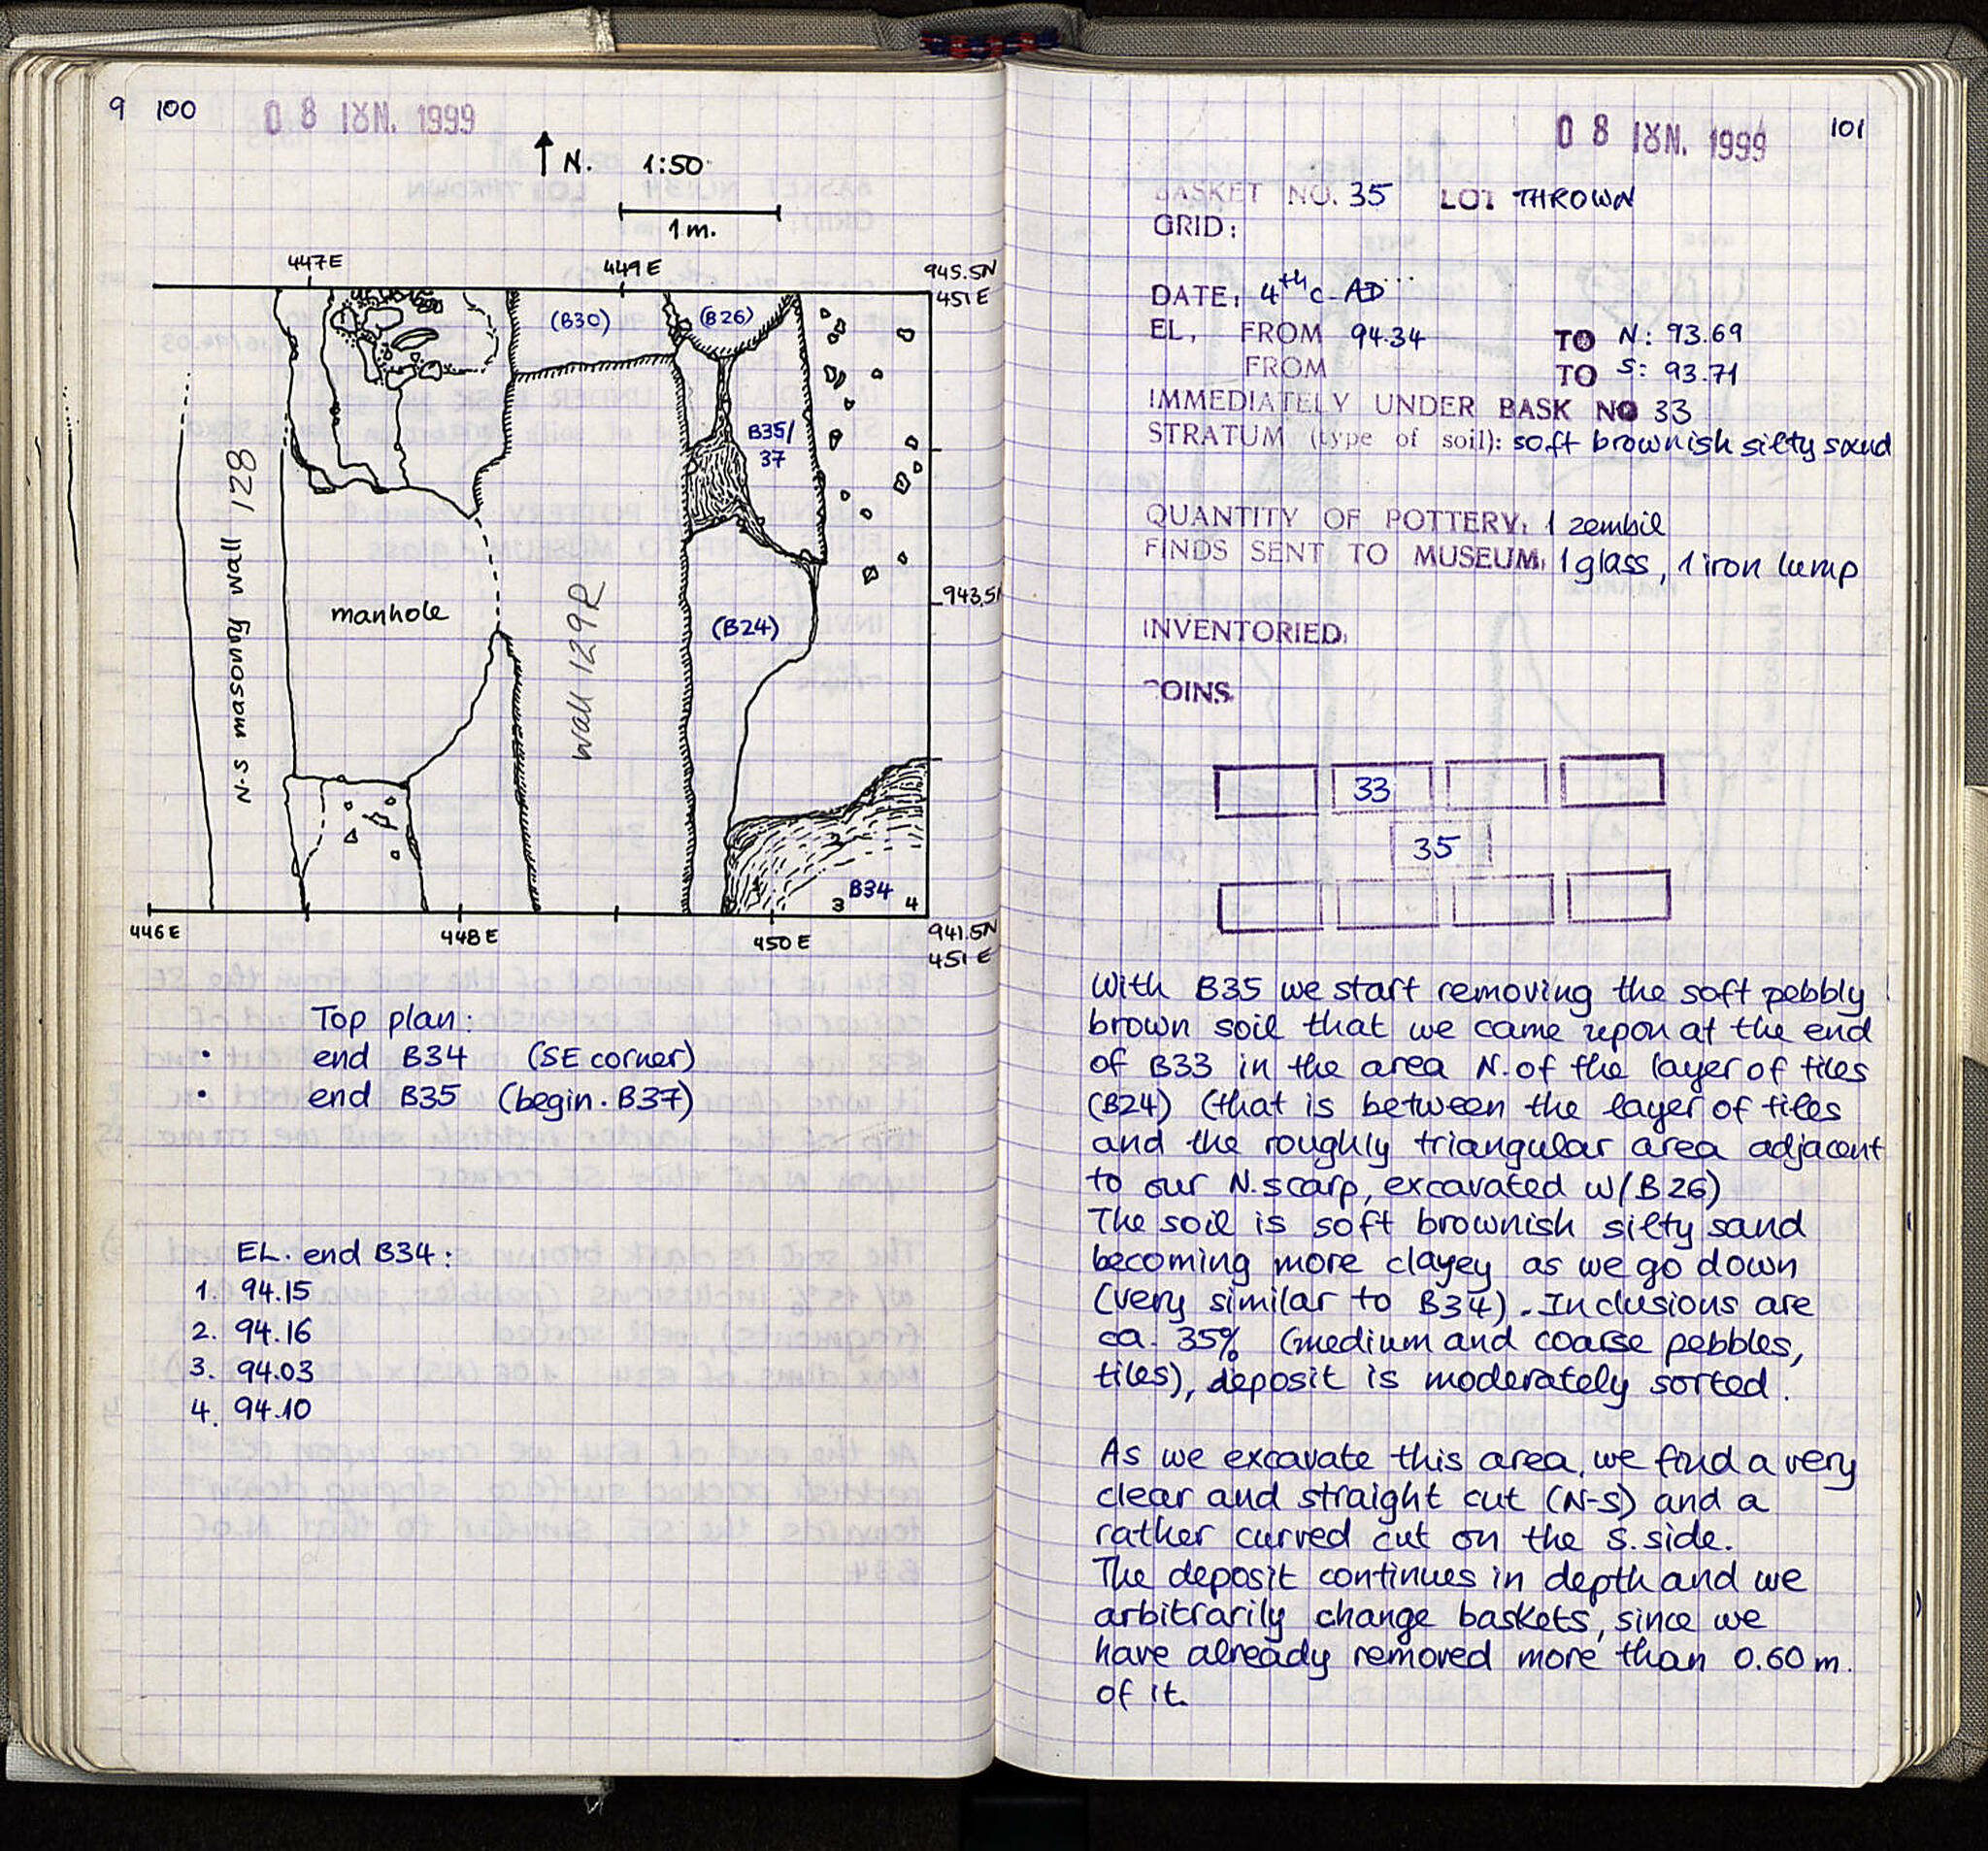 9 100
08 ΙΟΥΝ. 1999
N. 1:50
1 m.
447E
449E
945.5N
451E
(B30)
(B26)
B35/
37
N-S masonry wall 128
manhole
wall 129R
(B24)
943.5N
3 B34 4
446E
448E
450E
941.5N
451E
Top plan:
• end B34 (SE corner)
• end B35 (begin. B37)
EL. end B34:
1. 94.15
2. 94.16
3. 94.03
4. 94.10
08 ΙΟΥΝ. 1999
101
BASKET NO. 35 LOT THROWN
GRID:
DATE: 4th c. AD
EL. FROM 94.34 TO N: 93.69
FROM TO S: 93.71
IMMEDIATELY UNDER BASK NO 33
STRATUM (type of soil): soft brownish silty sand
QUANTITY OF POTTERY: 1 zembil
FINDS SENT TO MUSEUM: 1 glass, 1 iron lump
INVENTORIED:
COINS
33
35
With B35 we start removing the soft pebbly
brown soil that we came upon at the end
of B33 in the area N. of the layer of tiles
(B24) (that is between the layer of tiles
and the roughly triangular area adjacent
to our N. scarp, excavated w/ B26)
The soil is soft brownish silty sand
becoming more clayey as we go down
(very similar to B34). Inclusions are
ca. 35% (medium and coarse pebbles,
tiles), deposit is moderately sorted.
As we excavate this area, we find a very
clear and straight cut (N-S) and a
rather curved cut on the S. side.
The deposit continues in depth and we
arbitrarily change baskets, since we
have already removed more than 0.60 m.
of it.